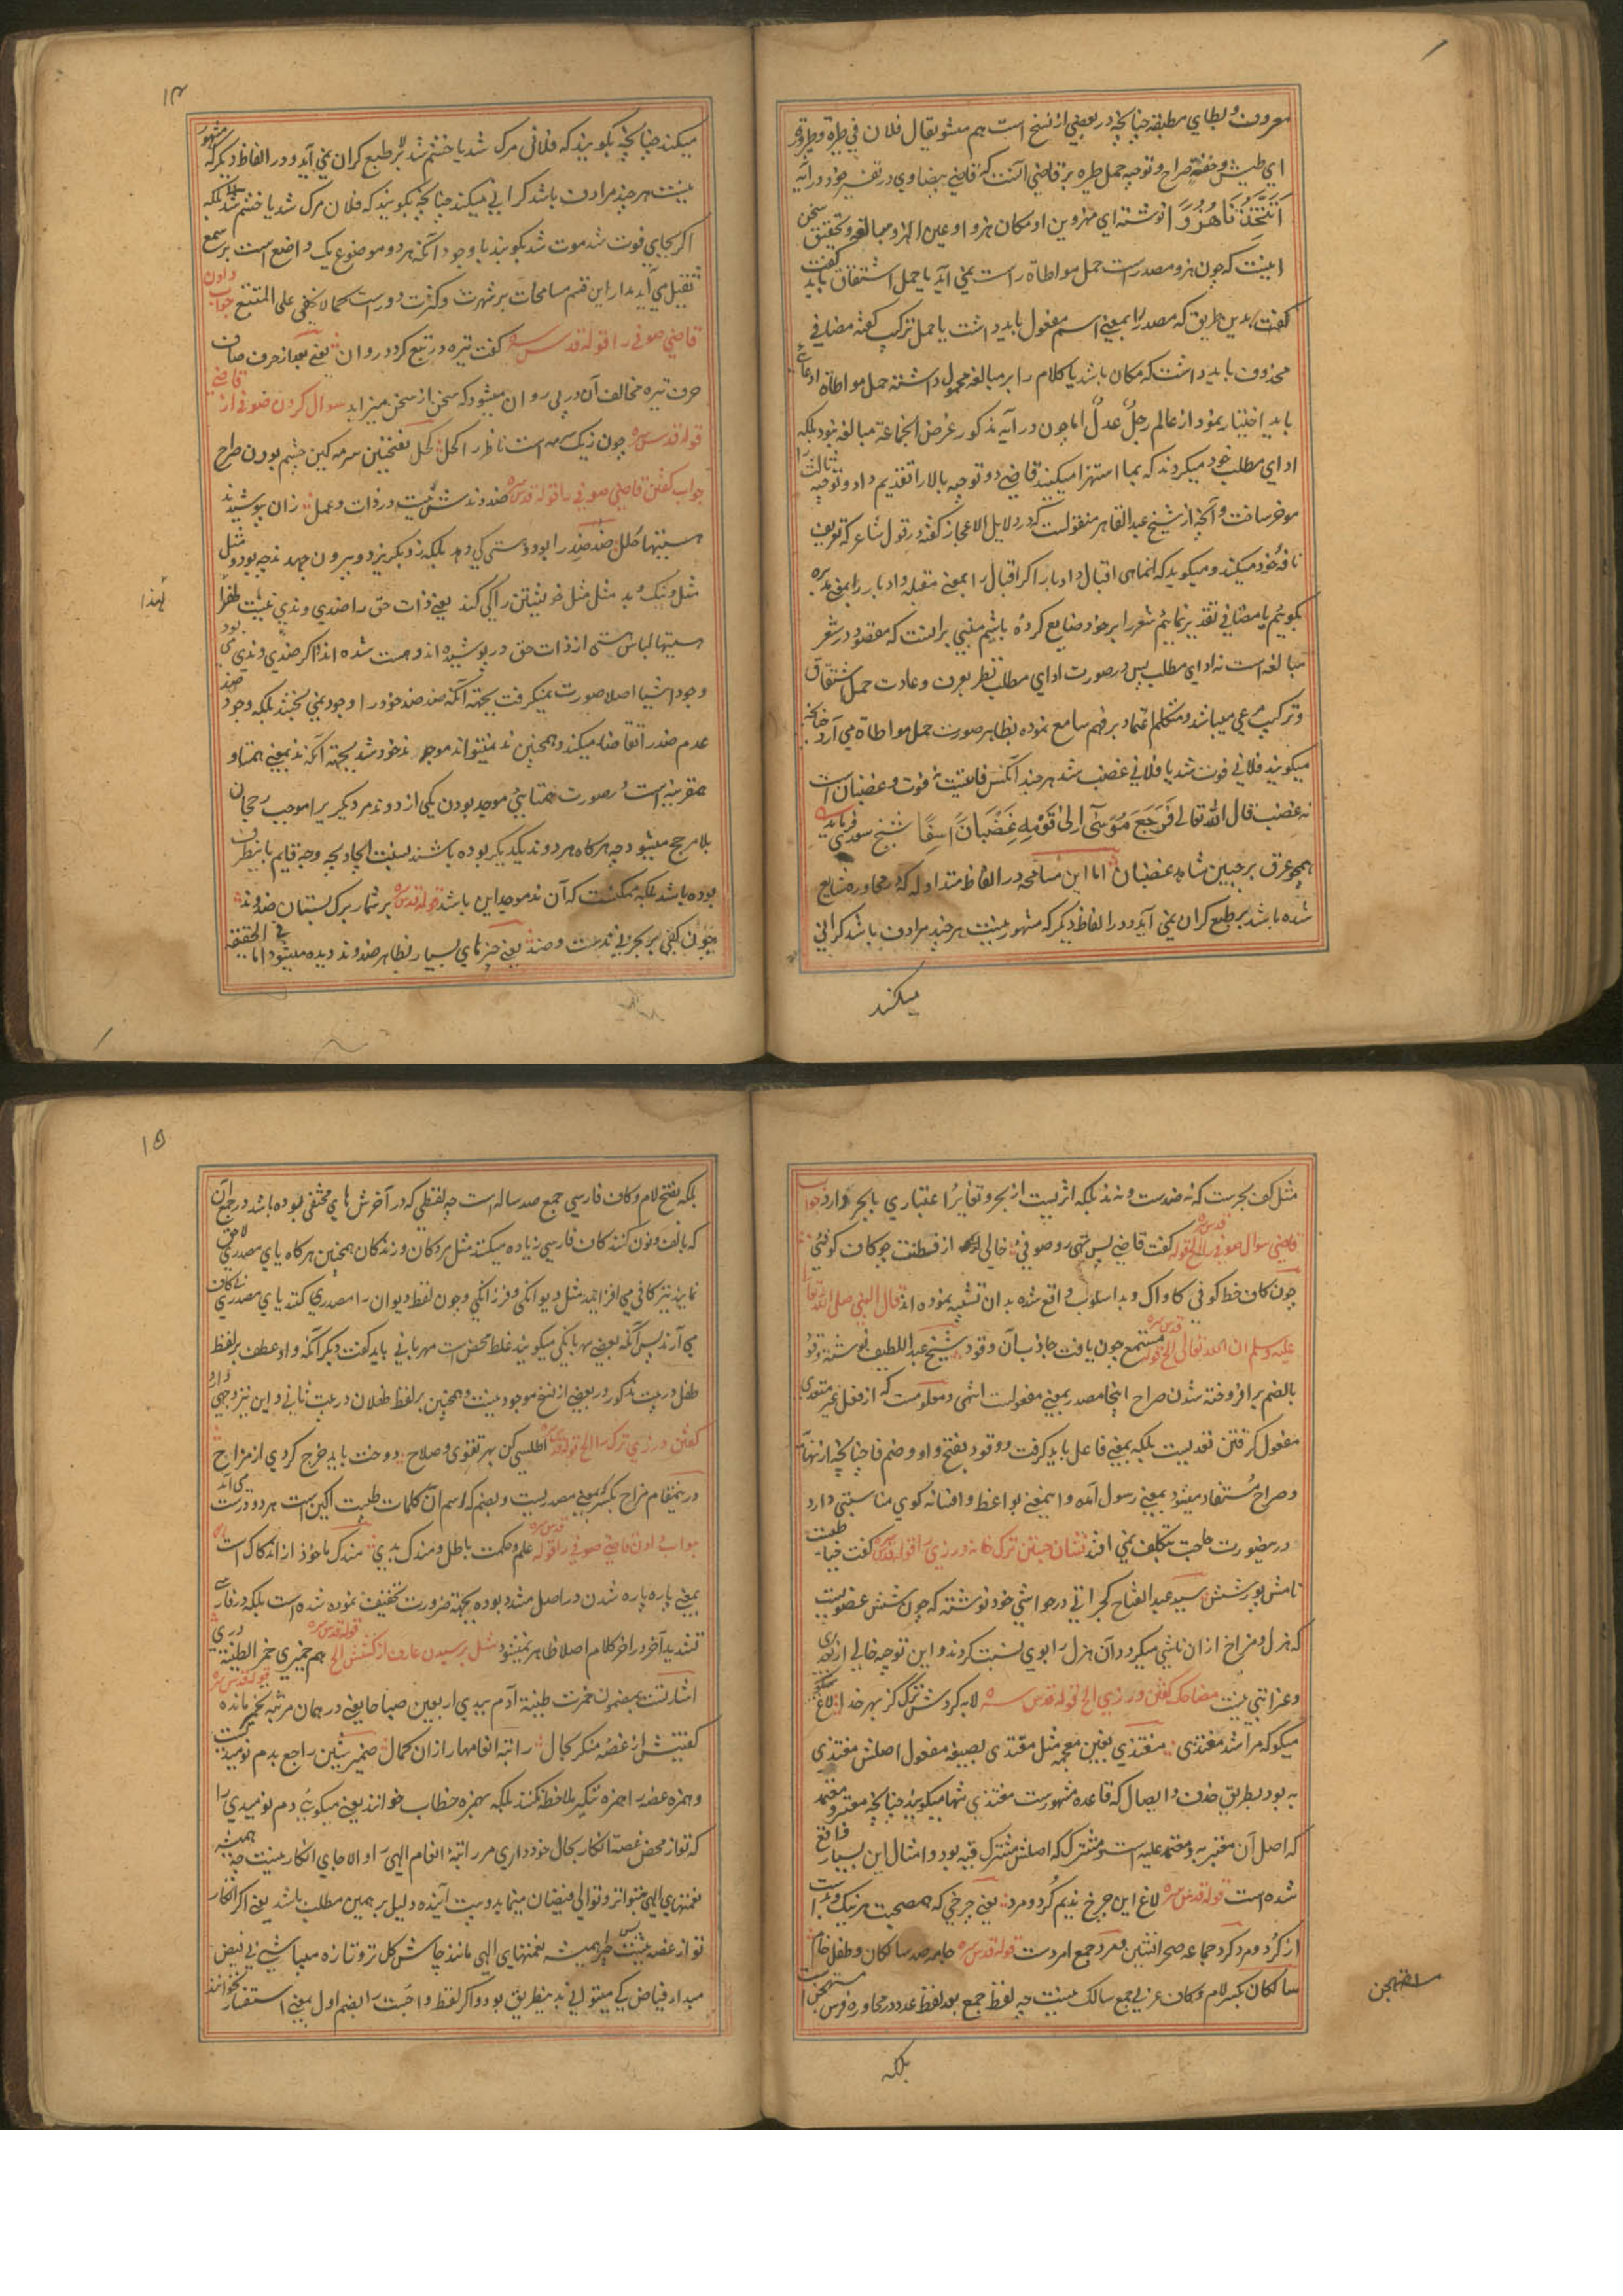 معروف و بطای مطبقه چنانچه در بعضی از نسخ است هم میشود یقال فلان فی طیره و طیروره
ای طیش و خفة صراح و توجیه حمل طره بر قاضی آنست که قاضی بیضاوی در تفسیر خود در آیه
أَتَتَّخِذُنَا هُزُوًا نوشته ای مهزوین او مکان هزو او عین الهزو مبالغه و تحقیق سخن
اینست که چون هزو مصدرست حمل مواطاة راست نمی آید یا حمل اشتقاق باید گفت
گفت بدین طریق که مصدر را بمعنی اسم مفعول باید داشت یا حمل ترکیب گفته مضافی
محذوف باید داشت که مکان باشد یا کلام را بر مبالغه محمول داشته حمل مواطاة ادعای
باید اختیار نمود از عالم رجلٌ عدلٌ اما چون در آیه مذکور غرض الجماعة مبالغه نبود بلکه
ادای مطلب خود میکردند که بما استهزا میکنید قاضی دو توجیه بالا را تقدیم داد و توجیه ثالث را
موخر ساخت و آنچه از شیخ عبدالقاهر منقولست که در دلایل الاعجاز گفته در قول شاعر که تعریف
ناقهٔ خود میکند و میگوید که انما هی اقبال و ادبار اگر اقبال را بمعنی مقبله و ادبار را بمعنی مدبره
بگوییم یا مضافی تقدیر نماییم شعر را بر خود ضایع کرده باشیم مبنی بر انست که مقصود در شعر
مبالغه است نه ادای مطلب پس در صورت ادای مطلب نظر بعرف و عادت حمل اشتقاق
و ترکیب مرعی میباشد و متکلم اعتماد بر فهم سامع نموده بظاهر صورت حمل مواطاة می آرد چنانچه
میگویند فلانی فوت شد یا فلانی غضب شد هر چند آنکس فوت و غضبان است
نه غضب قال الله تعالی فَرَجَعَ مُوسَى إِلَى قَوْمِهِ غَضْبَانَ أَسِفًا شیخ سعدی فرماید
همچو عرق بر جبین شاهد غضبان اما این مسامحه در الفاظ متداوله که در محاوره شایع
شده باشد بر طبع گران نمی آید و در الفاظ دیگر که مشهور نیست هر چند مرادف باشد گرانی
میکند
۱۴
میکند چنانچه بگویند که فلانی مرگ شد یا خشم شد بر طبع گران نمی آید و در الفاظ دیگر که مشهور
نیست هر چند مرادف باشد گرانی میکند چنانچه بگویند که فلان مرگ شد یا خشم شد بلکه
اگر بجای فوت شد موت شد بگویند با وجود آنکه هر دو موضوع یک واضع است بر سمع
ثقیل می آید مدار این قسم مسامحات بر شهرت و کثرت دورست کما لا یخفی علی المتتبع جواب دادن
قاضی صوفی را قوله قدس سره گفت تیره در تبع گردد روان یعنی بعد از حرف صاف
حرف تیره مخالف آن در پی روان میشود که سخن از سخن میزاید سوال کردن صوفی از قاضی
قوله قدس سره چون ز یک سرمه است ناظر را کحل کحل بفتحتین سرمه گین چشم بودن صراح
جواب گفتن قاضی صوفی را قوله قدس سره ضد و ندش نیست در ذات و عمل زان بپوشیدند
هستیها حلل ضد ضد را بود و هستی کی دهد بلکه زو بگریزد و بیرون جهد ند چه بود مثل
مثل و نیک و بد مثل مثل خویشتن را کی کند یعنی ذات حق را ضدی و ندی نیست لهذا
هستیها لباس هستی از ذات حق در پوشیده اند و هست شده اند اگر ضدی و ندی می بود
وجود اشیا اصلا صورت نمیگرفت بجهته آنکه ضد ضد خود را وجود نمی بخشد بلکه وجود ضد
عدم ضد را تقاضا میکند و همچنین ند نمیتواند موجد ند خود شد بجهته آنکه ند بمعنی همتا و
همقرینه است و بصورت همتایی موجد بودن یکی از دو ند مر دیگری را موجب رجحان
بلا مرجح میشود چه هرگاه هر دو ند یکدیگر بوده باشند نسبت ایجاد بچه وجه قایم باینطرف
بوده باشد بلکه ممکنست که آن ند موجد این باشد قوله قدس سره بر شمار برگ بستان ضد و ند
چون کفی بر بحر بی ندست و ضد یعنی چیزهای بسیار بظاهر ضد و ند دیده میشود اما فی الحقیقه
لهذا
مثل کف بحرست که نه ضدست و نه ند بلکه اثریست از بحر و تغایر اعتباری با بحر دارد جواب
قاضی سوال صوفی را الخ قوله قدس سره گفت قاضی بس تهی رو صوفیی خالی از فطنت چو کاف کوفیی
چون کاف خط کوفی کاواک و بد اسلوب واقع شده بدان تشبیه نموده اند قال النبی صلی الله تعالی
علیه و سلم ان الله تعالی الخ قوله قدس سره مستمع چون یافت جاذب آن وقود شیخ عبداللطیف نوشته وقود
بالضم بر افروخته شدن صراح اینجا مصدر بمعنی مفعولست انتهی و معلومست که از فعل غیر متعدی
مفعول گرفتن بعدیست بلکه بمعنی فاعل باید گرفت و وقود بفتح واو و ضم قاف چنانچه از نهایه
و صراح مستفاد میشود بمعنی رسول آمده و این معنی بواعظ و افسانه گوی مناسبتی دارد
درینصورت حاجت بتکلف نمی افتد نشان جستن ترک خانه درزی را قوله قدس سره گفت خیاطیست
نامش پور شش سید عبدالفتاح گجراتی در حواشی خود نوشته که چون شش عضویست
که هزل و مزاخ از ان ناشی میگردد آن هزل را بوی نسبت کردند و این توجیه خالی از بعدی
و غرابتی نیست مضاحک گفتن درزی الخ قوله قدس سره لابه کردش ترک کز بهر خدا لاغ میگو
میگو که مرا شد مغتذی مغتذی بغین معجمه مثل مقتدی بصیغه مفعول اصلش مغتذی
به بود بطریق حذف و ایصال که قاعده مشهورست مغتذی تنها میگویند چنانچه معتبر و معتمد
که اصل آن معتبر به و معتمد علیه است و مشترک که اصلش مشترک فیه بود و امثال این بسیار واقع
شده است قوله قدس سره لاغ این چرخ ندیم کرد و مرد یعنی چرخی که همصحبت هر نیک و بد است
از کرد و مرد کرد جماعه صحرانشین و مرد جمع امردست قوله قدس سره جامه صد سالگان و طفل خام
سالکان بکسر لام و کاف عربی جمع سالک نیست چه لفظ جمع بعد لفظ عدد در محاوره فرس مستهجن است
مستهجن
بلکه
۱۵
بلکه بفتح لام و کاف فارسی جمع صد ساله است چه لفظی که در آخرش های مختفی بوده باشد در جمع آن
که بالف و نون کنند کاف فارسی زیاده میکنند مثل بردگان و زندگان همچنین هرگاه یای مصدری لاحق
نمایند نیز کافی می افزایند مثل دیوانگی و فرزانگی و چون لفظ دیوان را مصدری کنند یای مصدری بی کاف
می آرند پس آنکه بعضی مهربانگی میگویند غلط محض است مهربانی باید گفت دیگر آنکه واو عطف بر لفظ
طفل در بیت مذکور در بعضی از نسخ موجود نیست و همچنین بر لفظ طفلان در بیت ثانی و این نیز وجهی دارد
گفتن درزی ترک را الخ قوله قدس سره اطلسی کن بهر تقوی و صلاح دوخت باید خرج کردی از مزاح
درینمقام مزاح بکسر که بمعنی مصدریست و بضم که اسم آن کلمات طیبت آگین است هر دو درست می آید
جواب دادن قاضی صوفی را قوله قدس سره علم و حکمت باطل و مندک بدی مندک ماخوذ از اندکاک است
بمعنی پاره پاره شدن در اصل مشدد بوده بجهته ضرورت تخفیف نموده شده است بلکه در فارسی
تشدید آخر در آخر کلام اصلا ظاهر نمیشود مثل پرسیدن عارف از کشیش الخ قوله قدس سره هم خمیری خمر الطینه دری
اشارتست بمضمون خمرت طینة آدم بیدی اربعین صباحا یعنی در همان مرتبه تخمیر مانده
قوله قدس سره گفتیش از غصه منکر بحال راتبه انعامها را زان کمال ضمیر شین راجع بدم نومیدیست
و همزه غصه را همزه تنکیر ملاحظه نکنند بلکه همزه خطاب خوانند یعنی میگویی دم نومیدی را
که تو از محض غصه انکار بحال خود داری مر راتبهٔ انعام الهی را و الا جای انکار نیست چه همیشه
نعمتهای الهی متواتر و توالی فیضان مینماید و بیت آینده دلیل بر همین مطلب باشد یعنی اگر انکار
تو از غصه نیست پس چرا همیشه بنعمتهای الهی مانند چاشش گل تر و تازه میباشی بی فیض
مبداء فیاض کی میتوانی بدینطریق بود و اگر لفظ واجبت را بضم اول بمعنی استفسار خوانند